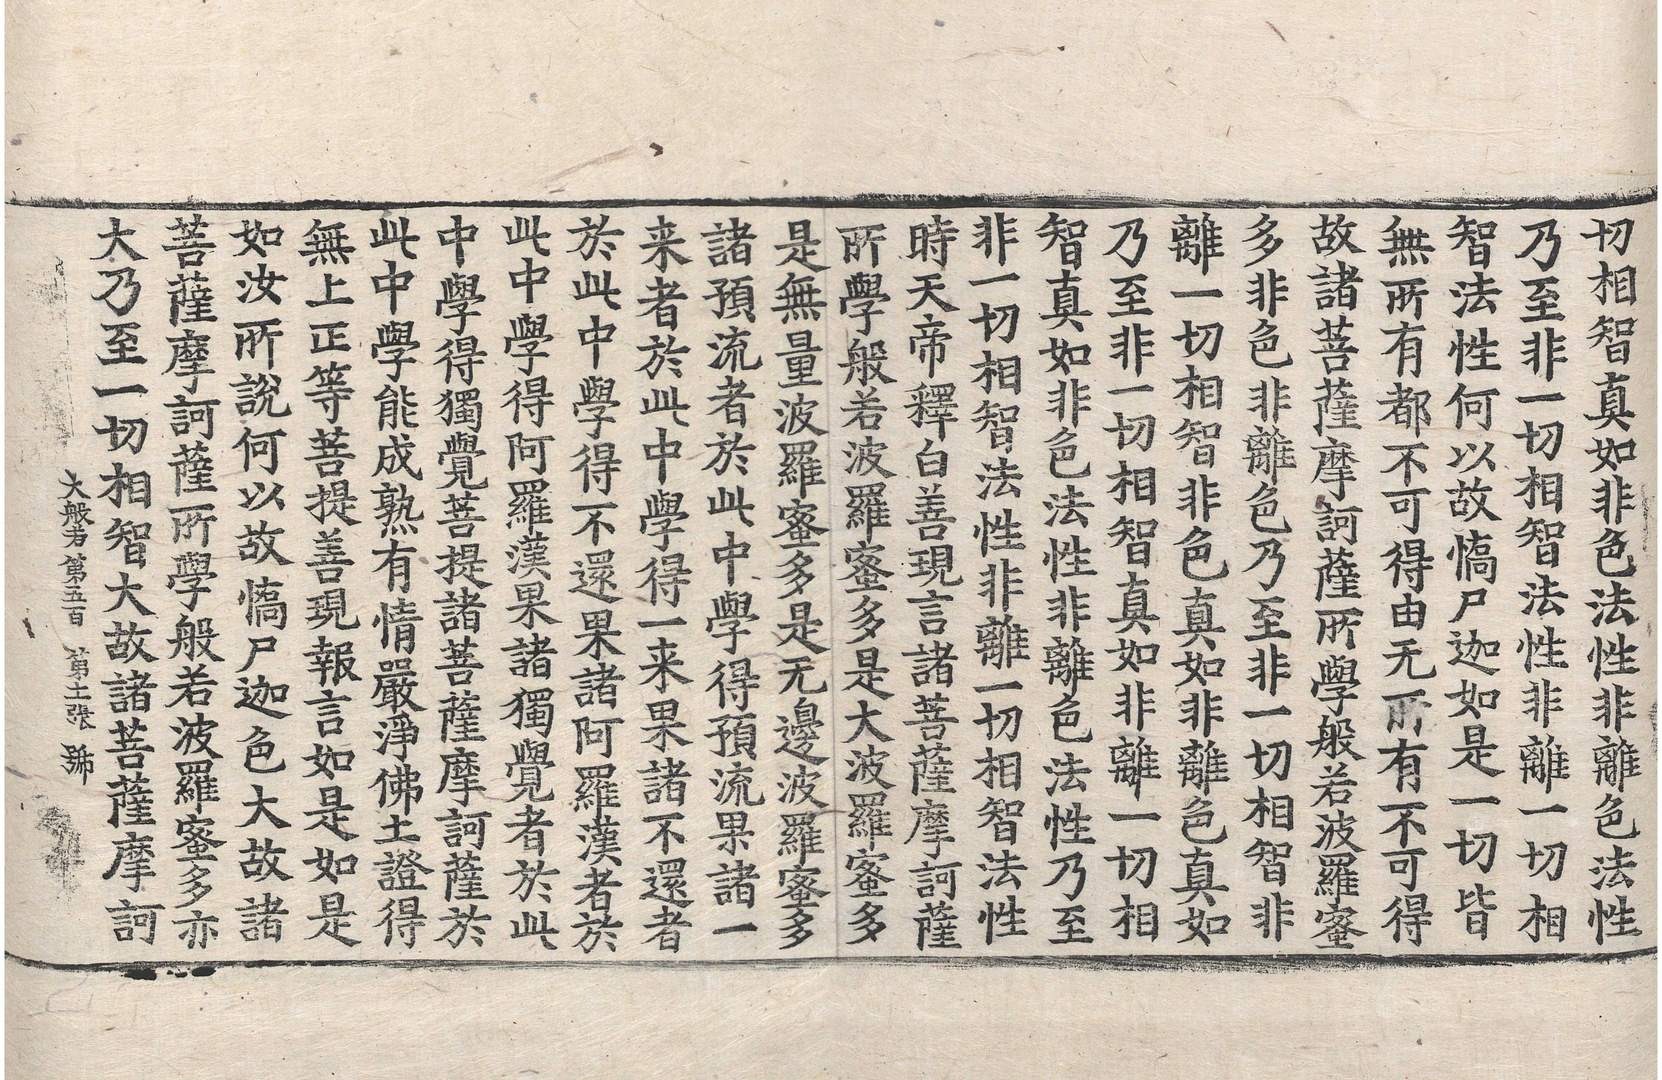 切相智真如非色法性非離色法性
乃至非一切相智法性非離一切相
智法性何以故憍尸迦如是一切皆
無所有都不可得由无所有不可得
故諸菩薩摩訶薩所學般若波羅蜜
多非色非離色乃至非一切相智非
離一切相智非色真如非離色真如
乃至非一切相智真如非離一切相
智真如非色法性非離色法性乃至
非一切相智法性非離一切相智法性
時天帝釋白善現言諸菩薩摩訶薩
所學般若波羅蜜多是大波羅蜜多
是無量波羅蜜多是无邊波羅蜜多
諸預流者於此中學得預流果諸一
来者於此中學得一来果諸不還者
於此中學得不還果諸阿羅漢者於
此中學得阿羅漢果諸獨覺者於此
中學得獨覺菩提諸菩薩摩訶薩於
此中學能成熟有情嚴淨佛土證得
無上正等菩提善現報言如是如是
如汝所說何以故憍尸迦色大故諸
菩薩摩訶薩所學般若波羅蜜多亦
大乃至一切相智大故諸菩薩摩訶
大般若第五百 第十一張 號